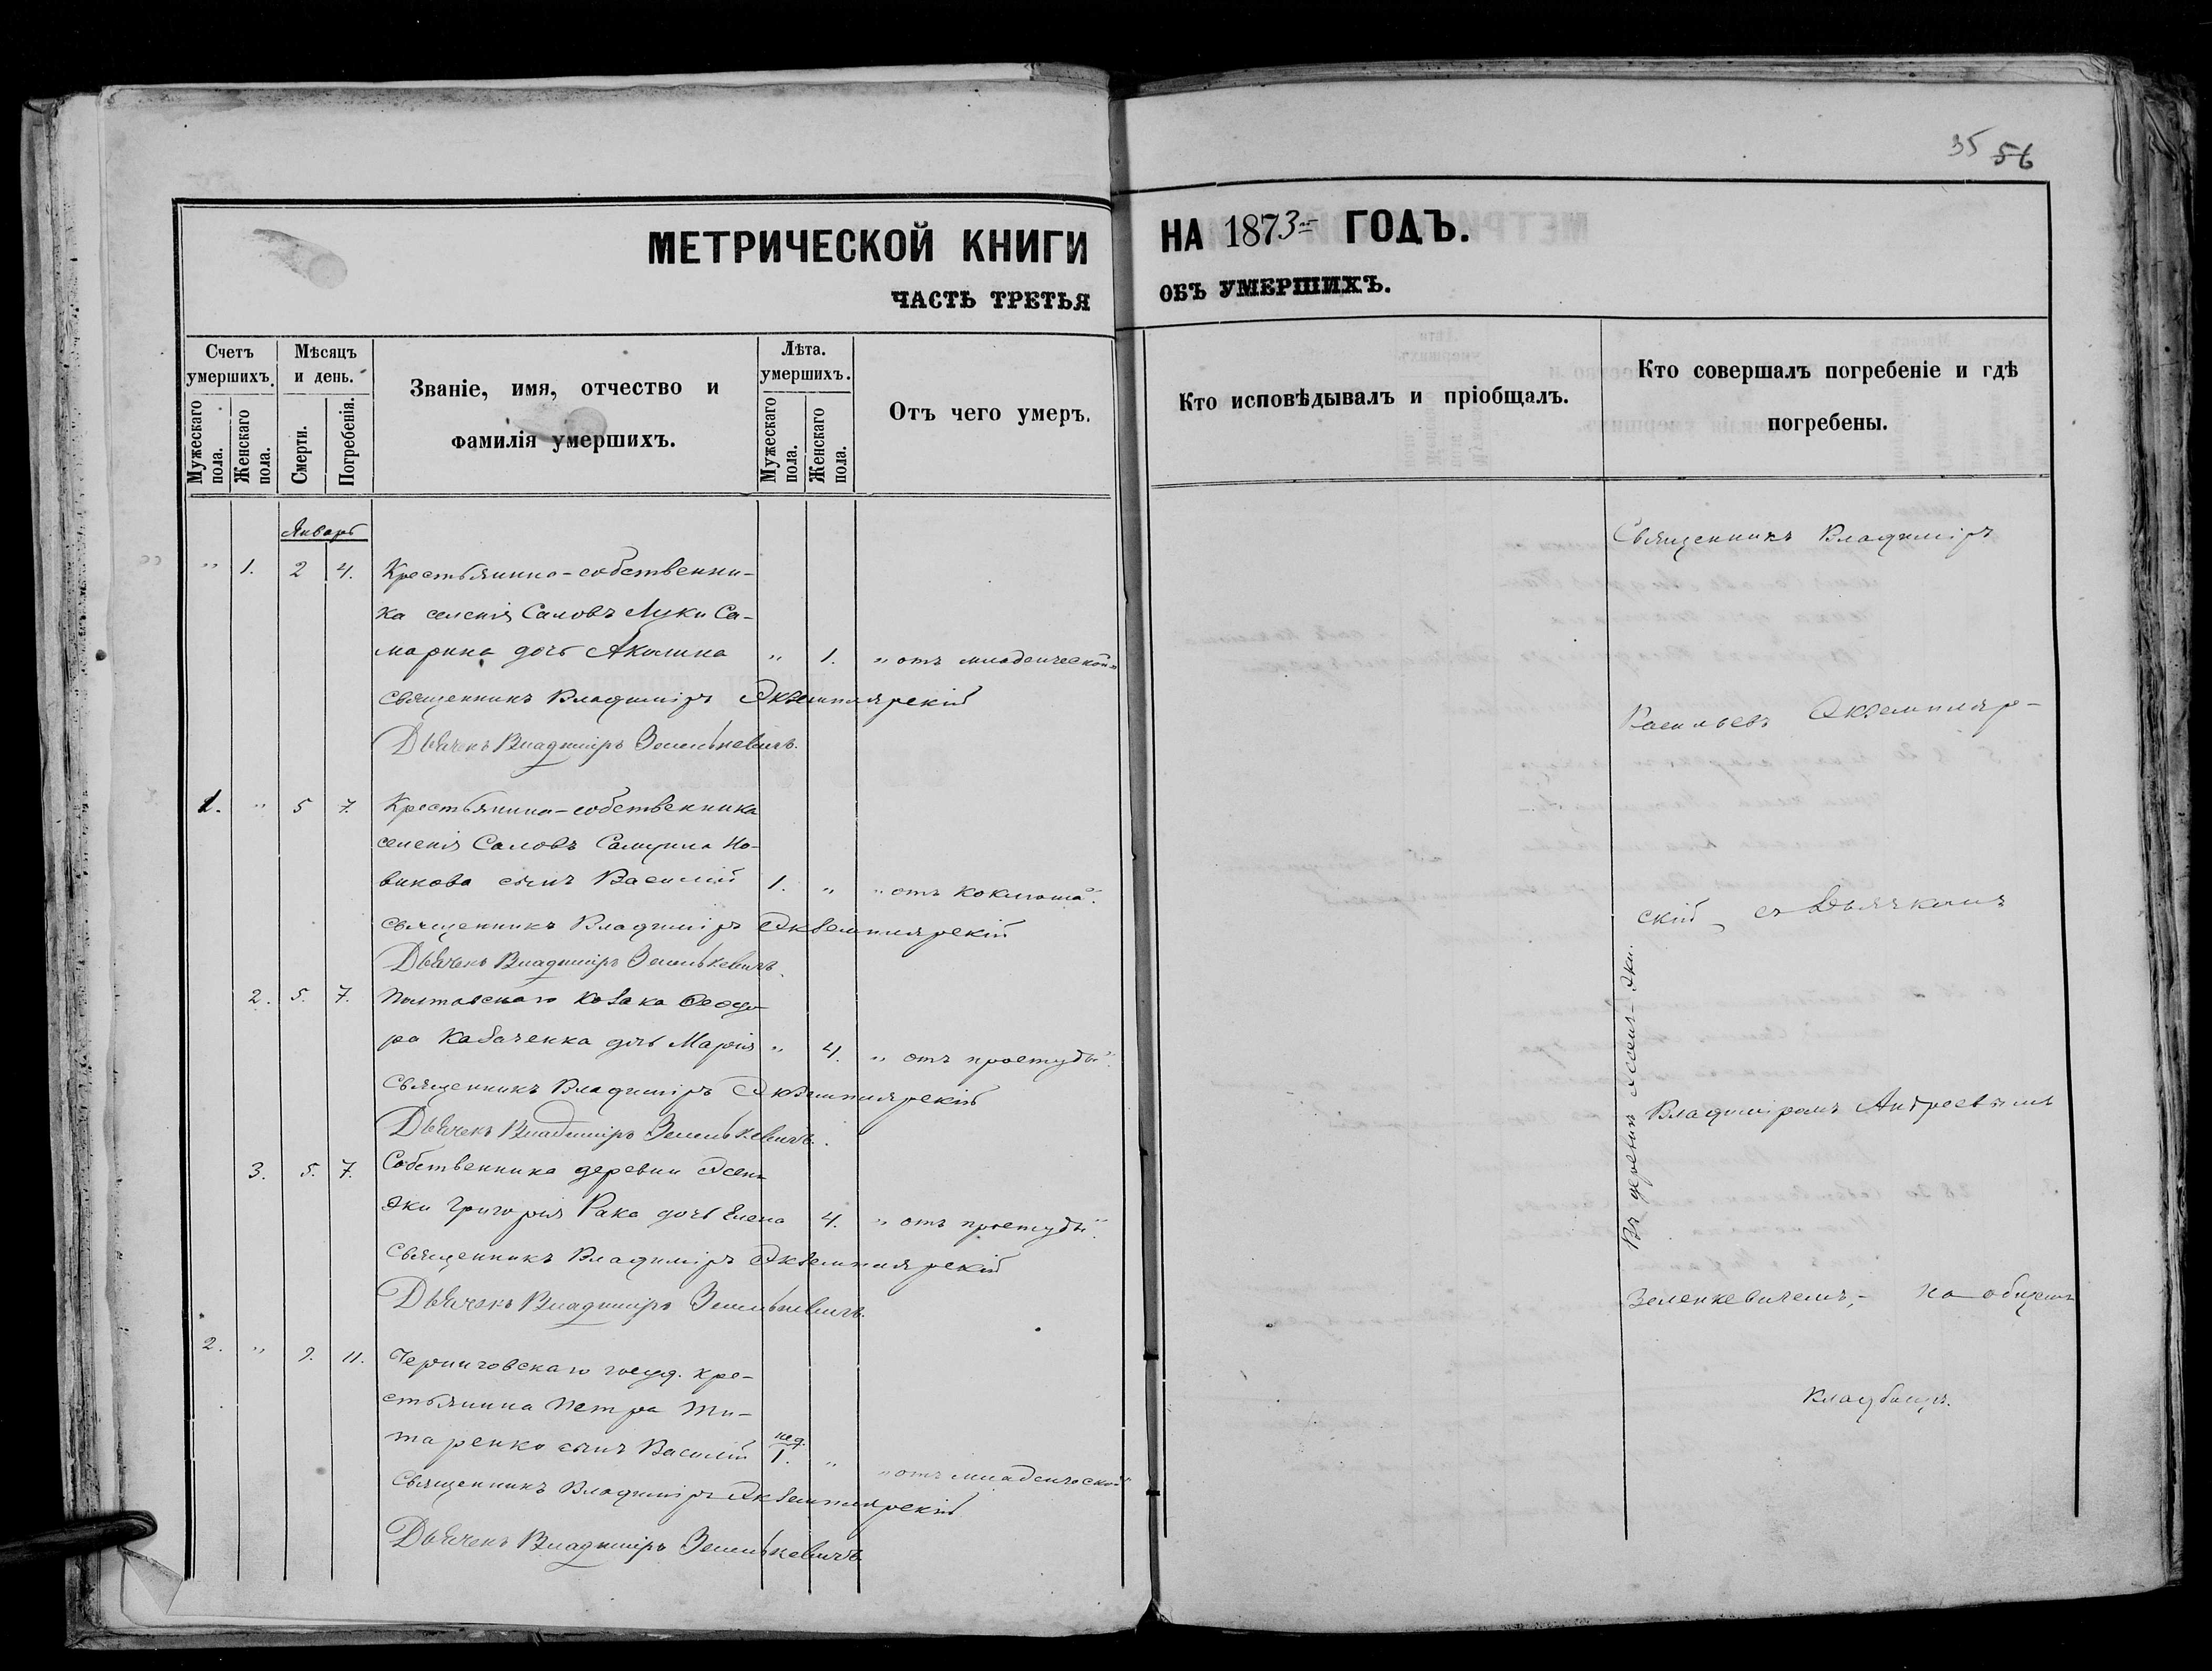 35 56
МЕТРИЧЕСКОЙ КНИГИ НА 1873 ГОДЪ.
ЧАСТЬ ТРЕТЬЯ ОБЪ УМЕРШИХЪ.
Счетъ умершихъ.
Мужескаго пола.
Женскаго пола.
Мѣсяцъ и день.
Смерти.
Погребенія.
Званіе, имя, отчество и
фамилія умершихъ.
Лѣта. умершихъ.
Мужескаго пола.
Женскаго пола.
Отъ чего умеръ.
Кто исповѣдывалъ и пріобщалъ.
Кто совершалъ погребеніе и гдѣ
погребены.
Январь
" 1. 2 4. Крестьянина-собственни-
ка селенія Саловъ Луки Са-
марина дочь Акилина " 1. "отъ младенческой"
Священникъ Владиміръ Экземплярскій
Дьячекъ Владиміръ Зеленькевичъ.
1. " 5 7. Крестьянина-собственника
селенія Саловъ Самуила Но-
викова сынъ Василій 1. " "отъ коклюша".
Священникъ Владиміръ Экземплярскій
Дьячекъ Владиміръ Зеленькевичъ.
2. 5. 7. Полтавскаго козака Ѳеодо-
ра Кабаченка дочь Марія " 4. "отъ простуды".
Священникъ Владиміръ Экземплярскій
Дьячекъ Владиміръ Зеленькевичъ.
3. 5. 7. Собственника деревни
Григорія Рака дочь Елена 4. "отъ простуды".
Священникъ Владиміръ Экземплярскій
Дьячекъ Владиміръ Зеленькевичъ.
2. " 9. 11. Черниговскаго госуд. кре-
стьянина Петра Ти-
таренко сынъ Василій нед. 1. " "отъ младенческой"
Священникъ Владиміръ Экземплярскій
Дьячекъ Владиміръ Зеленькевичъ
Священникъ Владиміръ
Васильевъ Экземпляр-
скій съ Дьячкомъ
Владиміромъ Андреевымъ
Зеленкевичемъ,- на общемъ
кладбищѣ.
Въ деревнѣ